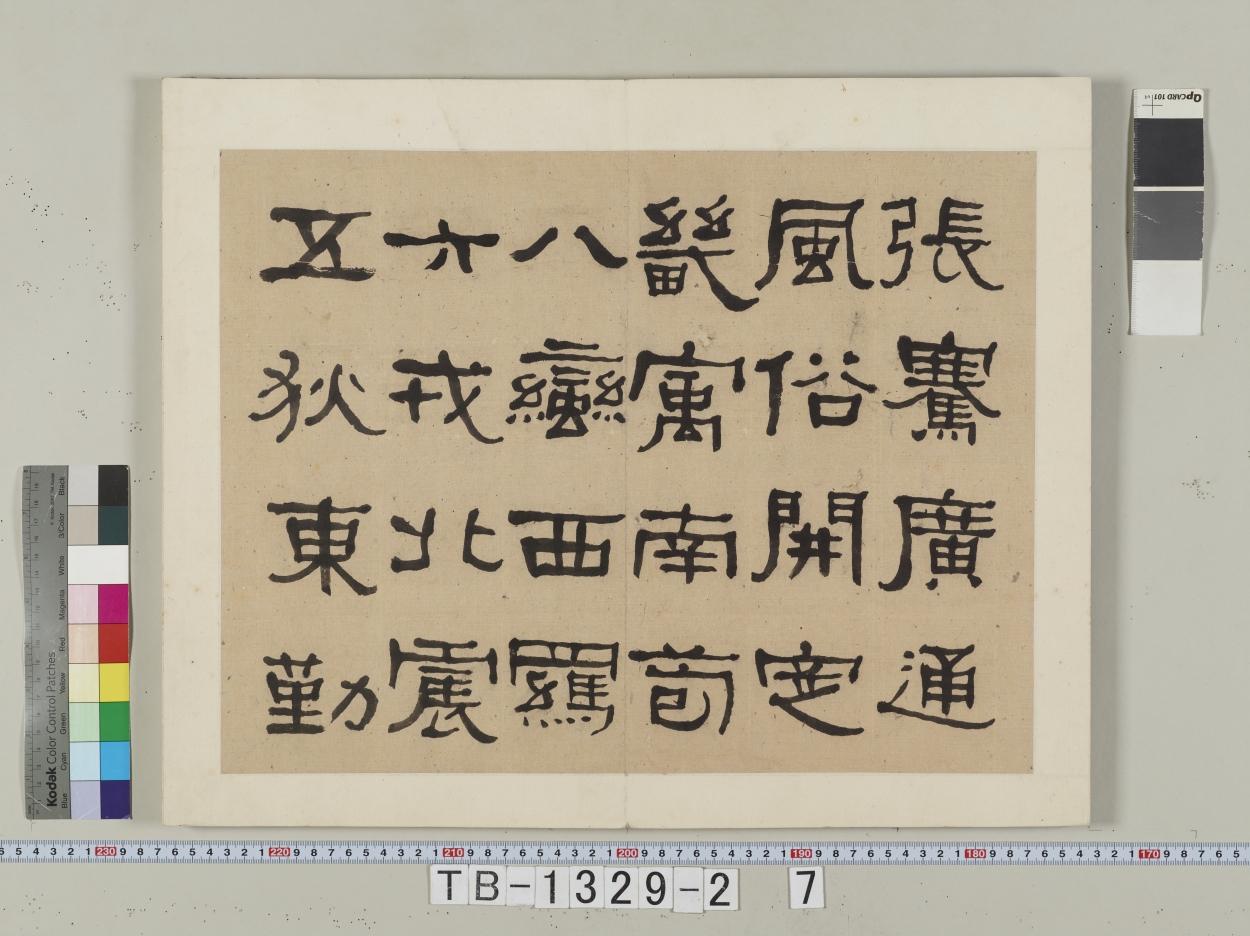 張騫廣通
風俗開定
畿寓南苞
八蠻西羈
六戎北震
五狄東勤
QPCARD 101
Kodak Color Control Patches
Blue Cyan Green Yellow Red Magenta White 3/Color Black
230 220 210 200 190 180 170
TB-1329-2 7